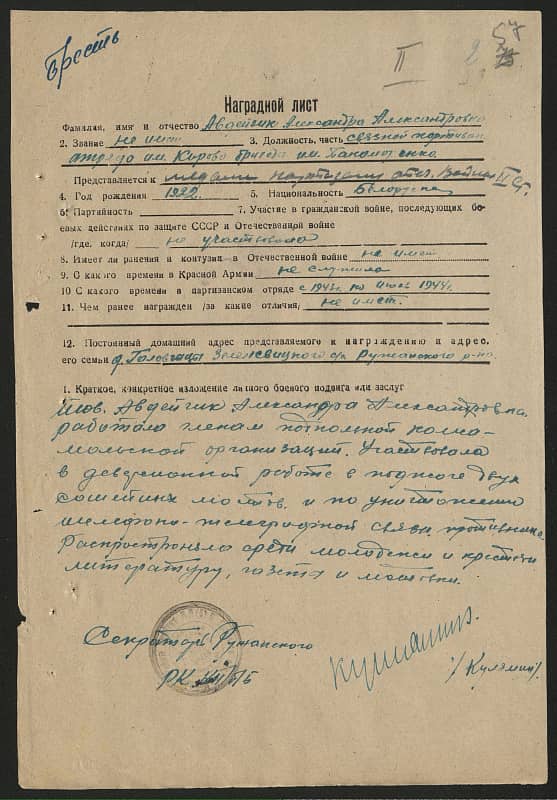 Брестъ
II
2
57
Наградной лист
Фамилия, имя и отчество Авдейчик Александра Александровна
2. Звание не имеет 3. Должность, часть связной партизан.
отряда им. Кирова бригада им. Пономаренко
Представляется к медали партизану отеч. войны II ст.
4. Год рождения 1922 5. Национальность Белоруска
6. Партийность 7. Участие в гражданской войне, последующих бо-
евых действиях по защите СССР и Отечественной войне
/где, когда/ не участвовала
8. Имеет ли ранения и контузии в Отечественной войне не имеет
9. С какого времени в Красной Армии не служила
10 С какого времени в партизанском отряде с 1943г. по июль 1944г.
11. Чем ранее награжден /за какие отличия/ не имеет.
12. Постоянный домашний адрес представляемого к награждению и адрес
его семьи Зеленевицкого с/с Ружанского р-на
1. Краткое, конкретное изложение личного боевого подвига или заслуг
Тов. Авдейчик Александра Александровна
работала членом подпольной комсо-
мольской организаций. Участвовала
в диверсионной работе в поджоге двух
мостов. и по уничтожению
телефоно-телеграфной связи противника.
Распространяла среди молодежи и крестьян
литературу, газеты и листовки.
Секретарь Ружанского
РК КП/б/Б